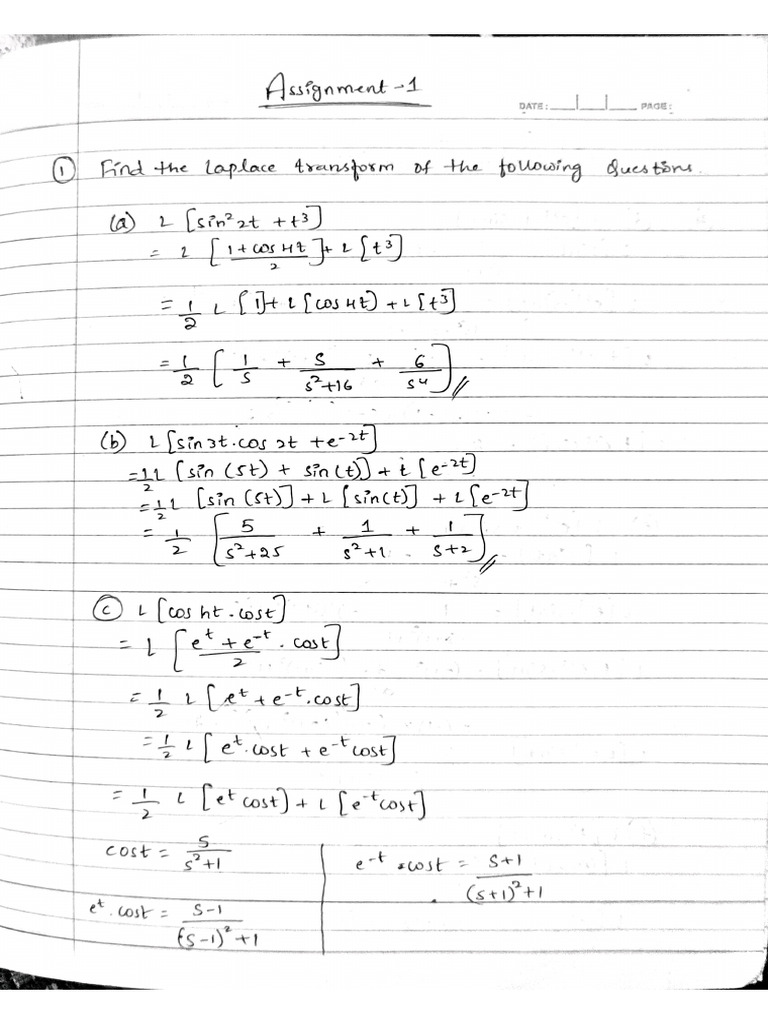 Assignment-1
DATE: PAGE:
① Find the Laplace transform of the following Questions.
(a) L [sin² 2t + t³]
= L [1+cos4t/2] + L [t³]
= 1/2 L [1] + L [cos4t) + L [t³]
= 1/2 [1/s + s/s²+16 + 6/s⁴]//
(b) L [sin3t.cos 2t + e-2t]
= 1/2 L [sin (5t) + sin(t)] + L [e-2t]
= 1/2 L [sin (5t)] + L [sin(t)] + L [e-2t]
= 1/2 [5/s²+25 + 1/s²+1 + 1/s+2]//
ⓒ L [cos ht . cost]
= L [e^t + e^-t/2 . cost]
= 1/2 L [e^t + e^-t.cost]
= 1/2 L [e^t.cost + e^-t cost]
= 1/2 L [e^t cost) + L [e^-t cost]
cost = s/s²+1
e^-t . cost = s+1/(s+1)²+1
e^t . cost = s-1/(s-1)²+1